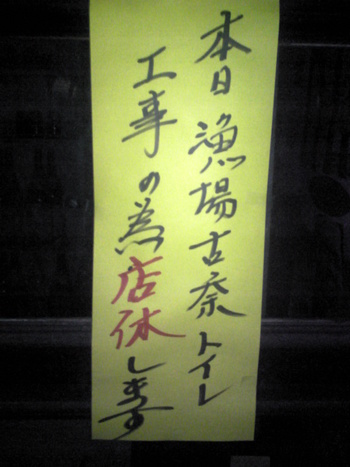 本日漁場古奈トイレ
工事の為店休します